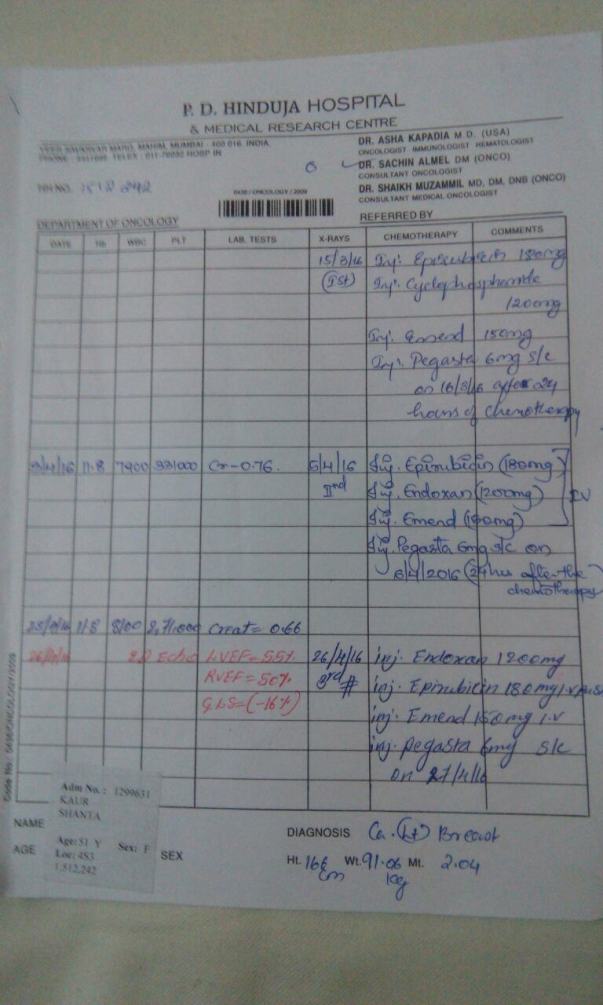 P. D. HINDUJA HOSPITAL
& MEDICAL RESEARCH CENTRE
VEER SAVARKAR MARG, MAHIM, MUMBAI - 400 016. INDIA.
DR. ASHA KAPADIA M D. (USA)
ONCOLOGIST IMMUNOLOGIST HEMATOLOGIST
DR. SACHIN ALMEL DM (ONCO)
CONSULTANT ONCOLOGIST
DR. SHAIKH MUZAMMIL MD, DM, DNB (ONCO)
CONSULTANT MEDICAL ONCOLOGIST
HH NO. 1512242
DEPARTMENT OF ONCOLOGY
REFERRED BY
DATE Hb WBC PLT LAB. TESTS X-RAYS CHEMOTHERAPY COMMENTS
15/3/16 Inj. Epirubicin 180mg
(Ist) Inj. Cyclophosphamide
1200mg
Inj. Emend 150mg
Inj. Pegasta 6mg s/c
on 16/3/16 after 24
hours of chemotherapy
11.8 7900 Cr-0.76. 5/4/16 Inj. Epirubicin (180mg)
IInd Inj. Endoxan (1200mg) IV
Inj. Emend (150mg)
Inj. Pegasta 6mg s/c on
6/4/2016 (24hrs after the
chemotherapy
11.8 8100 2,71,000 Creat = 0.66
2D Echo LVEF=55% 26/4/16 inj. Endoxan 1200mg
RVEF=50% 3rd inj. Epirubicin 180mg
GLS=(-16%) inj. Emend 150mg I.V
inj. Pegasta 6mg s/c
on 27/4/16
Adm No. : 1299631
KAUR
SHANTA
Age: 51 Y Sex: F
Loc: 4S3
1,512,242
NAME
AGE SEX
DIAGNOSIS Ca. (Lt) Breast
Ht. cm Wt. 91.06 kg Mt. 2.04